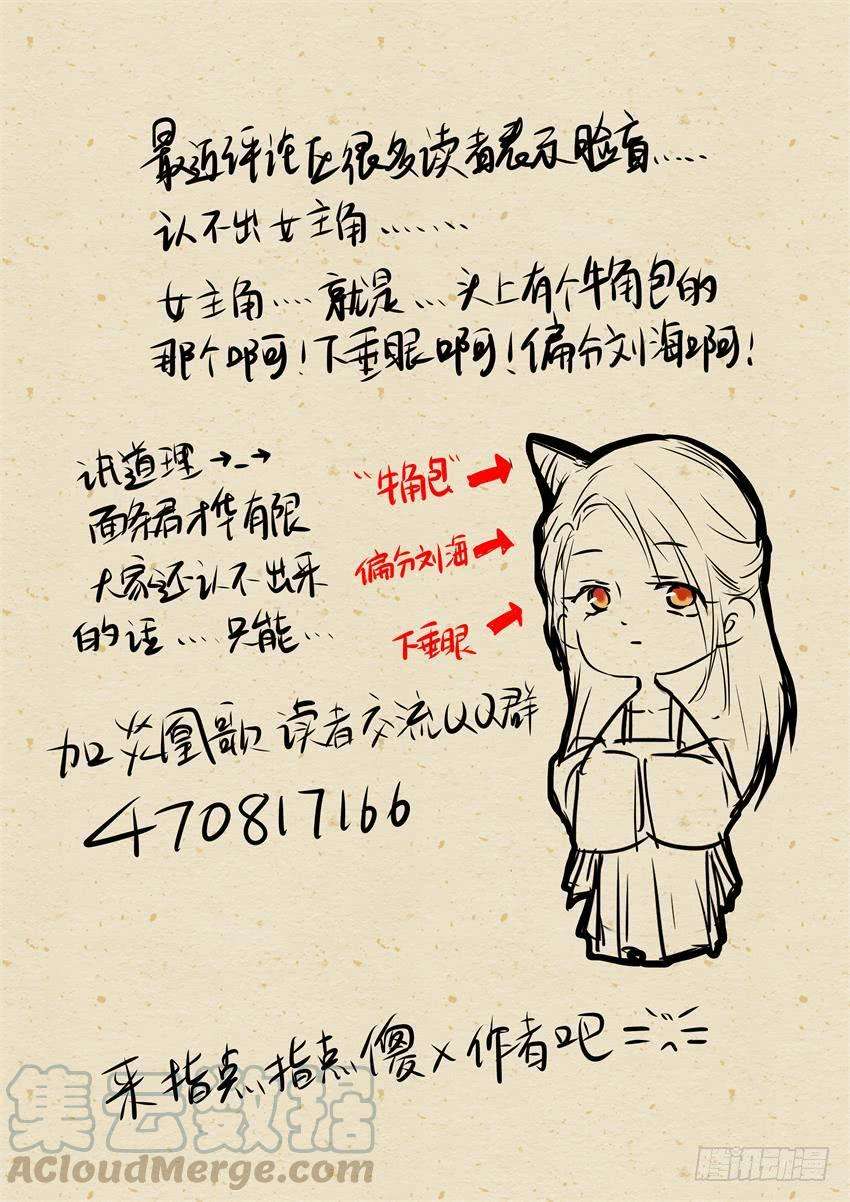 最近评论区很多读者表示脸盲……
认不出女主角………
女主角….就是…头上有个牛角包的
那个啊!下垂眼啊!偏分刘海啊!
讲道理→_→
面条君才华有限
大家还认不出来
的话….只能…
"牛角包"
偏分刘海
下垂眼
加炎凰歌读者交流QQ群
470817166
来指点指点傻x作者吧
集云数据
ACloudMerge.com
腾讯动漫